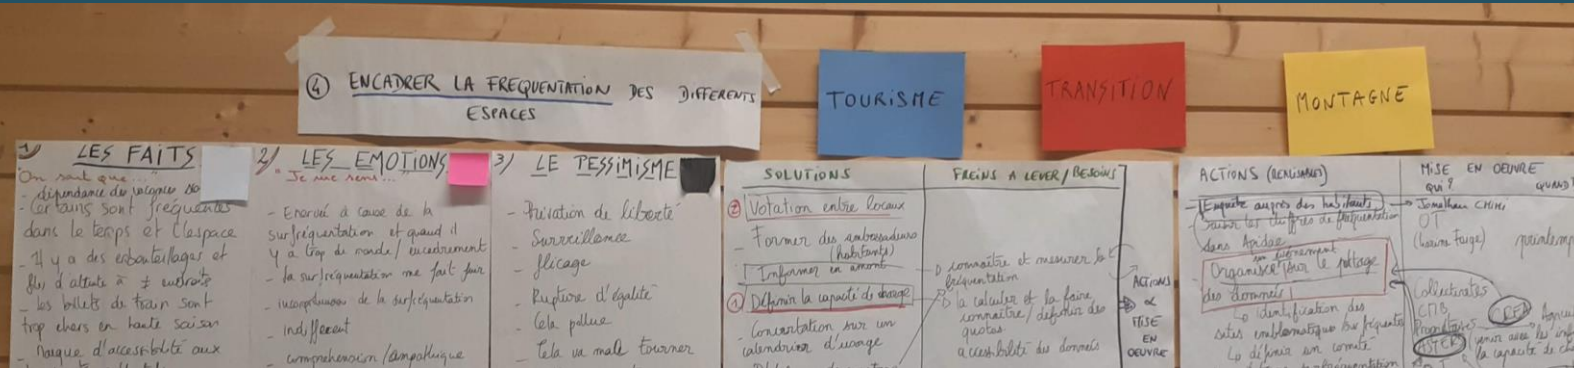 ④ ENCADRER LA FREQUENTATION DES DIFFERENTS
ESPACES
TOURISME
TRANSITION
MONTAGNE
1) LES FAITS
"On sait que..."
- dépendance des vacances
- Certains sont fréquentés
dans le temps et l'espace
- Il y a des embouteillages et
files d'attente à ± endroits
- les billets de train sont
trop chers en haute saison
- Manque d'accessibilité aux
2) LES EMOTIONS
"Je me sens...
- Enervé à cause de la
surfréquentation et quand il
y a trop de monde / encadrement
- la surfréquentation me fait fuir
- incompréhension de la surfréquentation
- indifférent
- compréhension / empathique
3) LE PESSIMISME
- Privation de liberté
- Surveillance
- flicage
- Rupture d'égalité
- Cela pollue
- Cela va mal tourner
SOLUTIONS
② Votation entre locaux
- Former des ambassadeurs
(habitants)
- Informer en amont
① Définir la capacité de charge
- Concertation sur un
calendrier d'usage
FREINS A LEVER / BESOINS
connaître et mesurer la
fréquentation
la calculer et la faire
connaître / définir des
quotas
accessibilité des données
ACTIONS
MISE
EN
OEUVRE
ACTIONS (REALISABLES)
- Enquête auprès des habitants
- Saisir les chiffres de fréquentation
dans Apidae
un événement
- Organiser sur le partage
des données
identification des
sites emblématiques fréquentés
définir un comité
MISE EN OEUVRE
QUI? QUAND
Jonathan
OT
(Laurine Farge) printemps
Collectivités
CMB
CREA
ASTERS
la capacité de